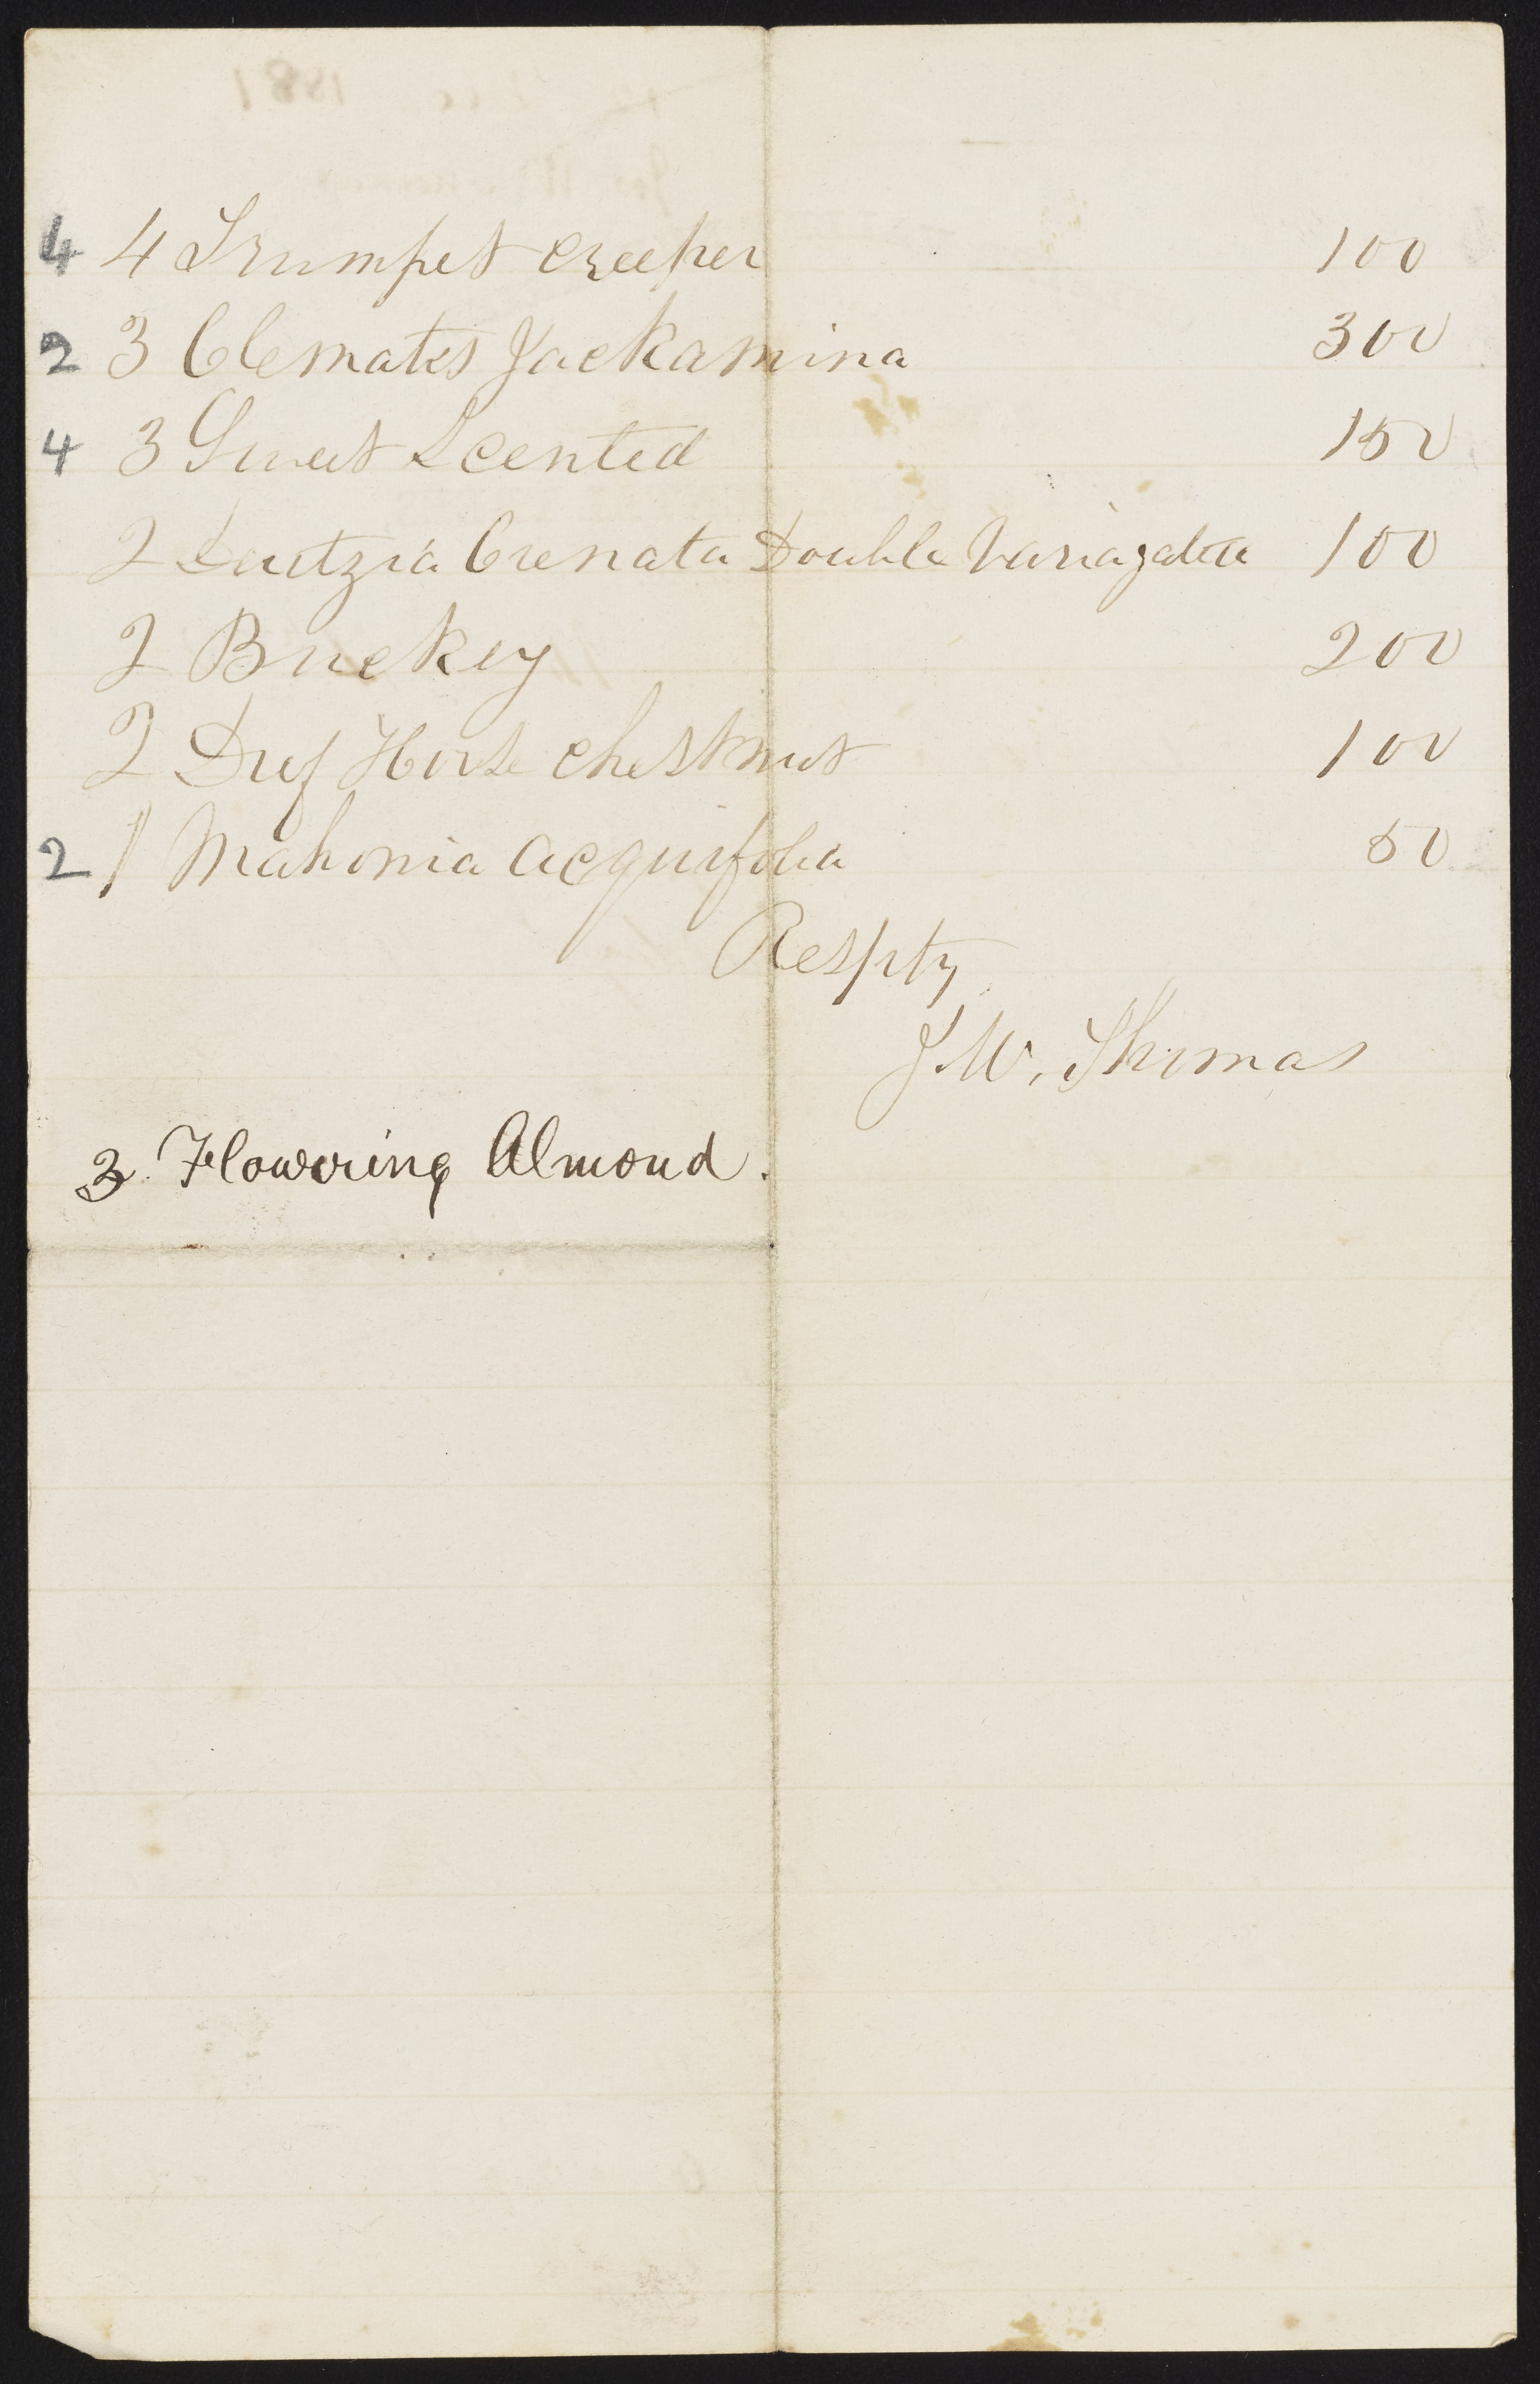 4 4 Trumpet creeper 100
2 3 Clematis Jackamina 300
4 3 Sweet Scented 150
2 Deutzia Crenata Double Variagata 100
2 Buckey 200
2 Duf Horse chestnut 100
2 1 Mahonia acquifolia 50
Respty
J. W. Thomas
3 Flowering Almond.